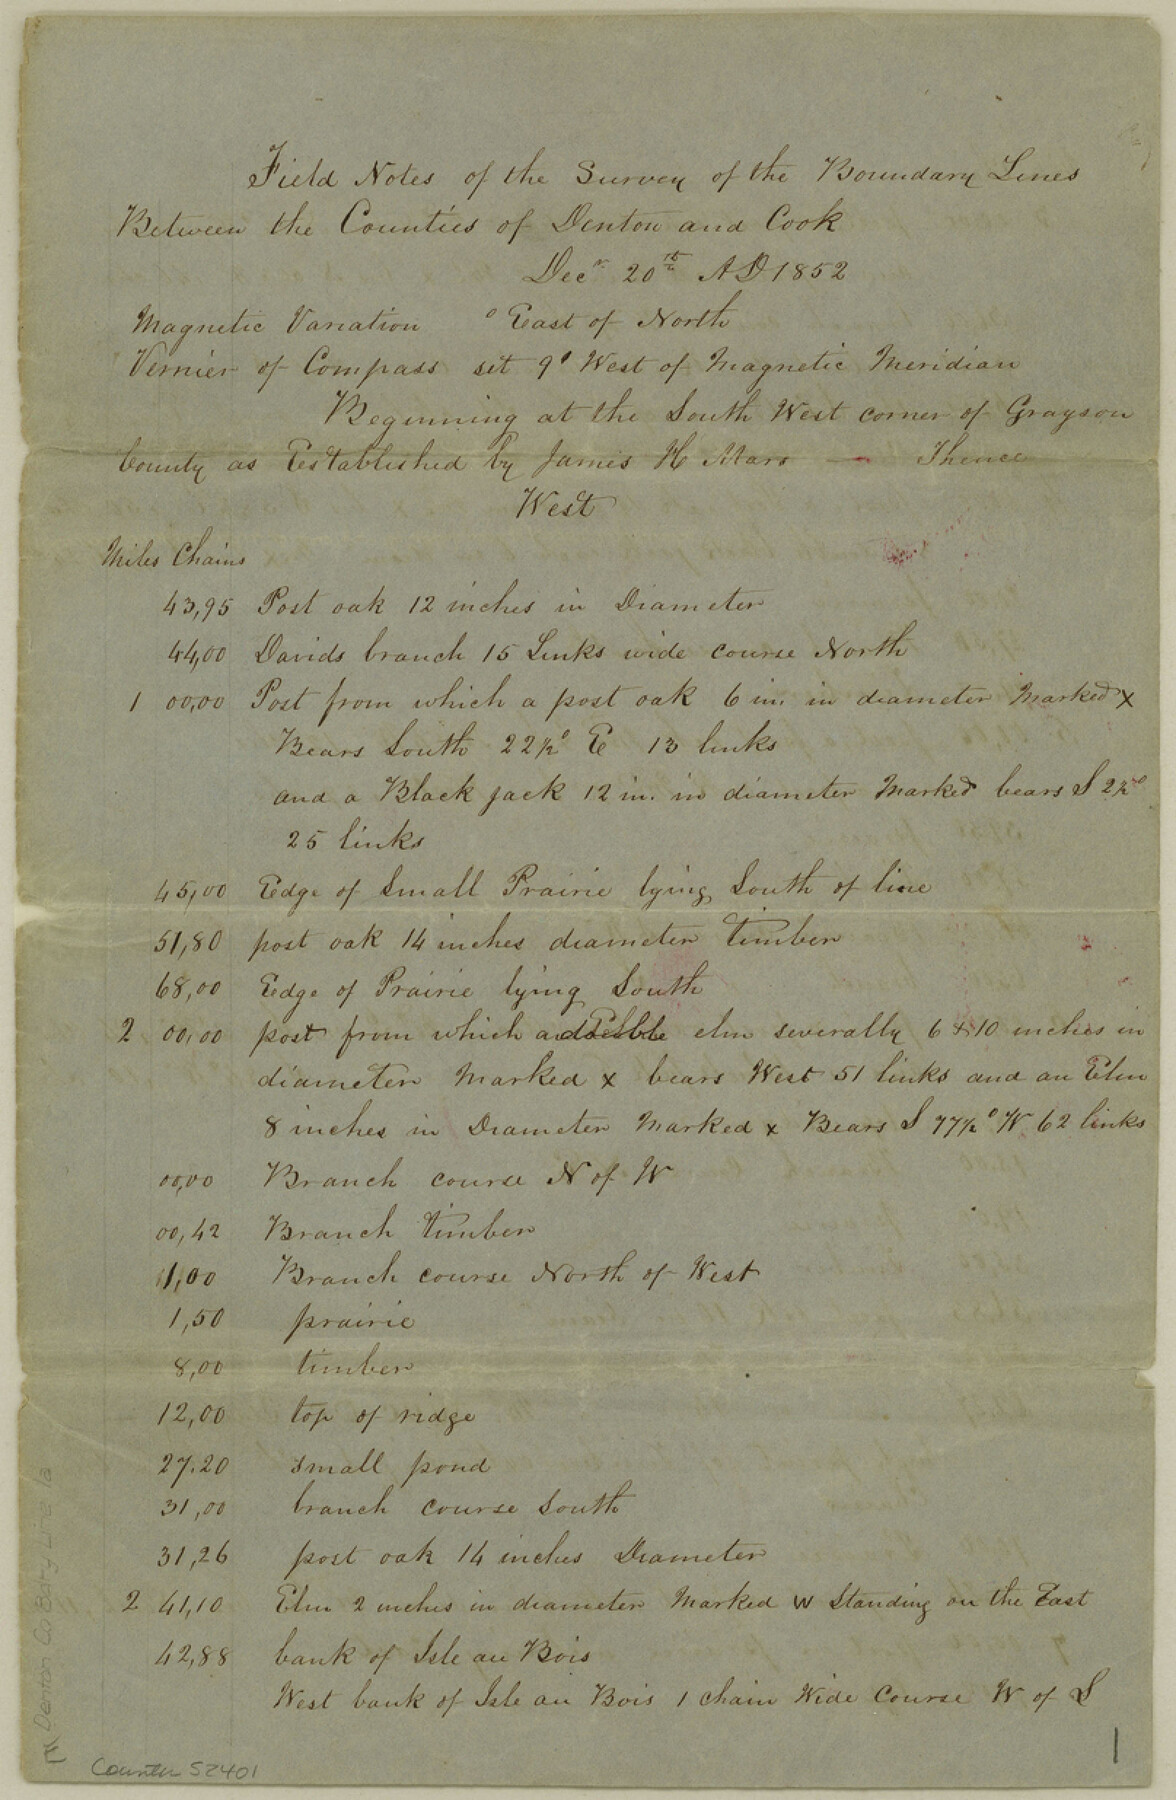 Field Notes of the Survey of the Boundary Lines
Between the Counties of Denton and Cook
Decr 20th AD 1852
Magnetic Variation ° East of North
Vernier of Compass set 9° West of Magnetic Meridian
Beginning at the South West corner of Grayson
County as Established by James H Mars — Thence
West
Miles Chains
43,95 Post oak 12 inches in Diameter
44,00 Davids branch 15 Links wide course North
1 00,00 Post from which a post oak 6 in. in diameter Marked x
Bears South 22½° E 13 links
and a Black jack 12 in. in diameter Marked bears S 2½°
25 links
45,00 Edge of Small Prairie lying South of line
51,80 post oak 14 inches diameter timber
68,00 Edge of Prairie lying South
2 00,00 post from which a double elm severally 6 & 10 inches in
diameter Marked x bears West 51 links and an Elm
8 inches in Diameter Marked x Bears S 77½° W 62 links
00,00 Branch course N of W
00,42 Branch timber
1,00 Branch course North of West
1,50 prairie
8,00 timber
12,00 top of ridge
27.20 small pond
31,00 branch course South
31,26 post oak 14 inches Diameter
2 41,10 Elm 2 inches in diameter Marked W Standing on the East
42,88 bank of Isle au Bois
West bank of Isle au Bois 1 chain Wide Course W of S
1
Counter 52401
Denton Co. Bdry Line 1a